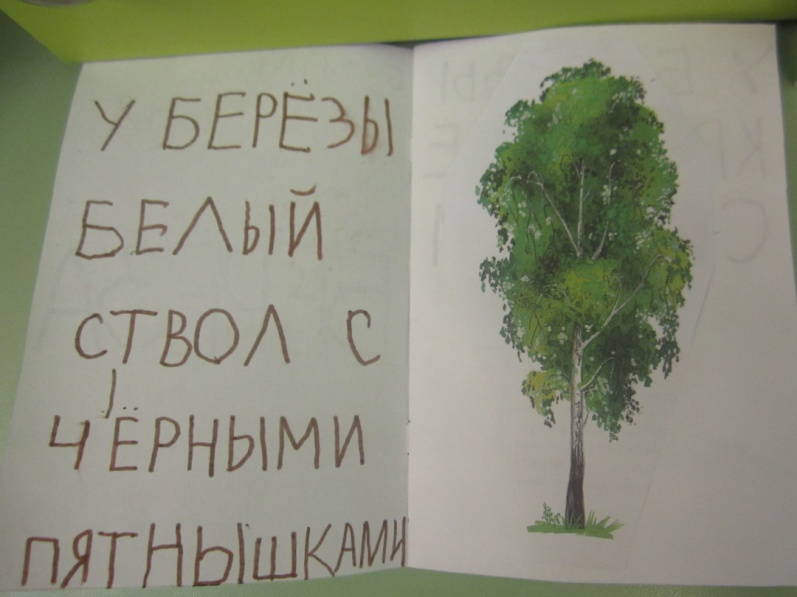 У БЕРЁЗЫ
БЕЛЫЙ
СТВОЛ С
ЧЁРНЫМИ
ПЯТНЫШКАМИ